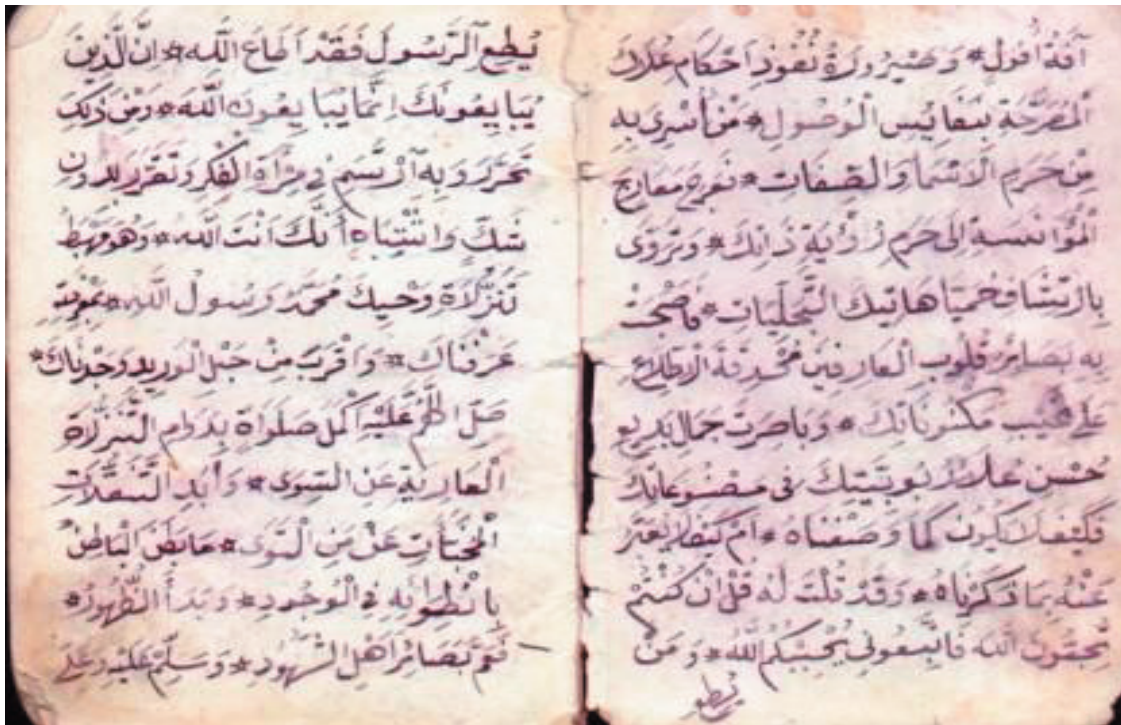 آفة أفول * وصيرورة نفوذ أحكام علاك
المصرحة بنفائس الوصول * من أسري به
من حرم الأسما والصفات * نعرج معارج
المؤانسة إلى حرم رؤية ذاتك * وتروى
بارتشاف حميا هاتيك التجليات * فأضحت
به بصائر قلوب العارفين محدقة الاطلاع
على مكنوناتك * وباصرت جمال بديع
حسن علا ربوبيتك في مصنوعاتك
فكيف لا نكون كما وصفناه * أم كيف لا يعبر
عنه بما ذكرناه * وقد قلت له قل إن كنتم
تحبون الله فاتبعوني يحببكم الله * ومن
يطع
يُطِعِ الرَّسُولَ فَقَدْ أَطَاعَ اللَّه * إنَّ الَّذِينَ
يُبَايِعُونَكَ إنَّمَا يُبَايِعُونَ اللَّهَ * ومن ذلك
تحرر وبه ارتسم في مرآة الفكر وتقرر بدون
شك واشتباه أنك أنت الله * وهو مهبط
تنزلاة وحيك محمد رسول الله *
عرفناك * وأقرب من حبل الوريد وجدناك *
صل اللهم عليه أكمل صلواة بدوام التنزلاة
العارية عن السوى * وأبد التعقلات
عن من التوى * ما بطن الباطن
بانطوائه في الوجود * وبدأ الظهور *
نعم بصائر أهل الشهود * وسلم عليه وعلى